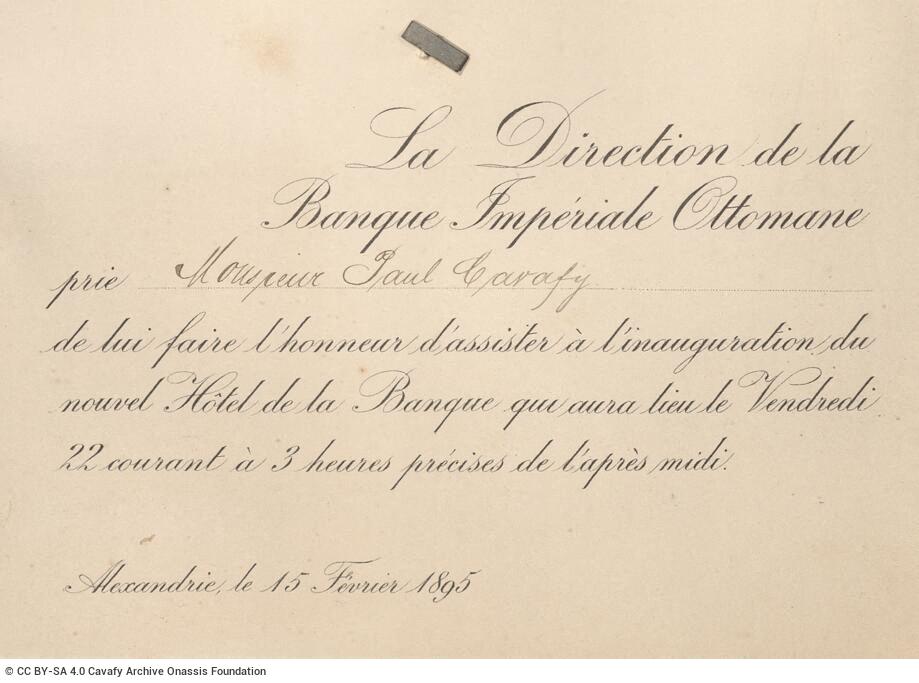 La Direction de la
Banque Impériale Ottomane
prie Monsieur Paul Cavafy
de lui faire l'honneur d'assister à l'inauguration du
nouvel Hôtel de la Banque qui aura lieu le Vendredi
22 courant à 3 heures précises de l'après midi.
Alexandrie, le 15 Février 1895
© CC BY-SA 4.0 Cavafy Archive Onassis Foundation